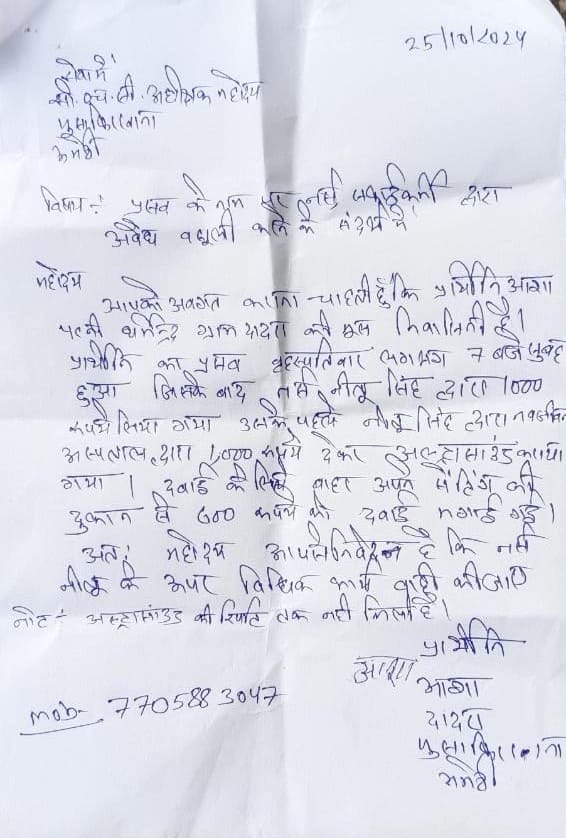 25/10/2024
सेवा में
सी. एच. सी. अधीक्षक महोदय
फुरसतगंज
अमेठी
विषय :- प्रसव के नाम पर नर्स सफाईकर्मी द्वारा
अवैध वसूली करने के संदर्भ में
महोदय
आपको अवगत कराना चाहती हूँ कि प्रार्थीनि आशा
पत्नी धर्मेन्द्र ग्राम दादरा की मूल निवासिनी है।
प्रार्थीनि का प्रसव बृहस्पतिवार लगभग 7 बजे सुबह
हुआ जिसके बाद नर्स नीलू सिंह द्वारा 1000
रूपये लिया गया उसके पहले नीलू सिंह द्वारा नवजीवन
अस्पताल द्वारा 1,000 रूपये देकर अल्ट्रासाउंड कराया
गया। दवाई के लिये बाहर अपने सेटिंग की
दुकान से 600 रूपये की दवाई मंगाई गई।
अतः महोदय आपसे निवेदन है कि नर्स
नीलू के ऊपर विधिक कार्य वाही की जाये
नोट :- अल्ट्रासाउंड की रिपोर्ट तक नही मिली है।
प्रार्थीनि
आशा
आशा
दादरा
अमेठी
mob- 7705883047